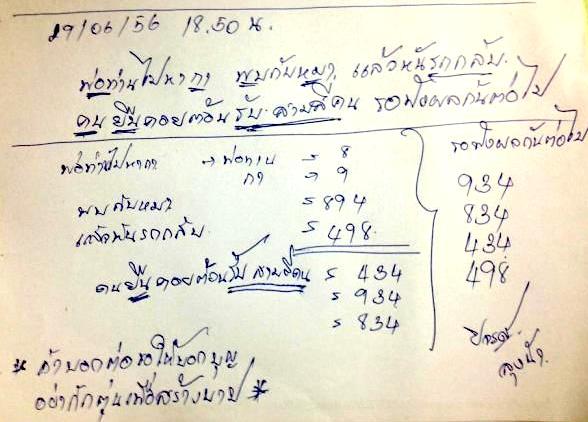 29/06/56 18.50 น.
พ่อท่านไปหากา พบกับหมา แล้วหันรถกลับ
คนยืนคอยต้อนรับ สามสี่คน รอฟังผลกันต่อไป
พ่อท่านไปหากา → พ่อท่าน = 8
กา → 9
พบกับหมา = 894
แล้วหันรถกลับ = 498
คนยืนคอยต้อนรับ สามสี่คน = 434
= 934
= 834
รอฟังผลกันต่อไป
934
834
434
498
ลุงน้ำ
* ถ้าบอกต่อขอให้บอกบุญ
อย่ากักตุนเพื่อสร้างบาป *